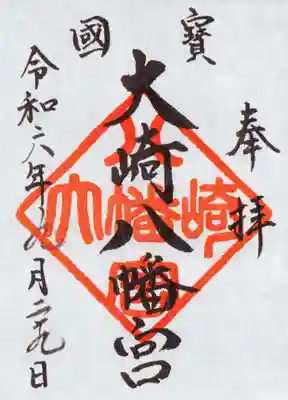 國寶
奉拝
大崎八幡宮
令和六年九月二九日
大崎八幡宮